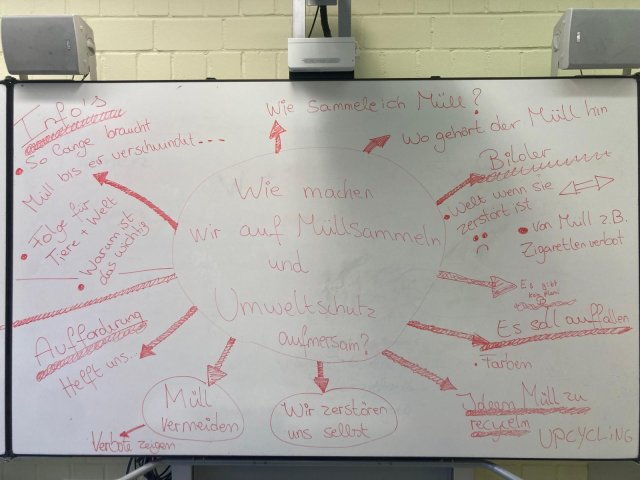 Wie sammele ich Müll?
Wo gehört der Müll hin
Info's
So lange braucht
Müll bis er verschwindet...
Folge für
Tiere + Welt
Warum ist
das wichtig
Wie machen
wir auf Müllsammeln
und
Umweltschutz
aufmersam?
Bilder
Welt wenn sie
zerstört ist
von Müll z.B.
Zigaretten verbot
Es gibt
Es soll auffallen
Farben
Aufforderung
Helft uns..
Müll
vermeiden
Verbote zeigen
Wir zerstören
uns selbst
Ideen Müll zu
recyceln
UPCYCLING